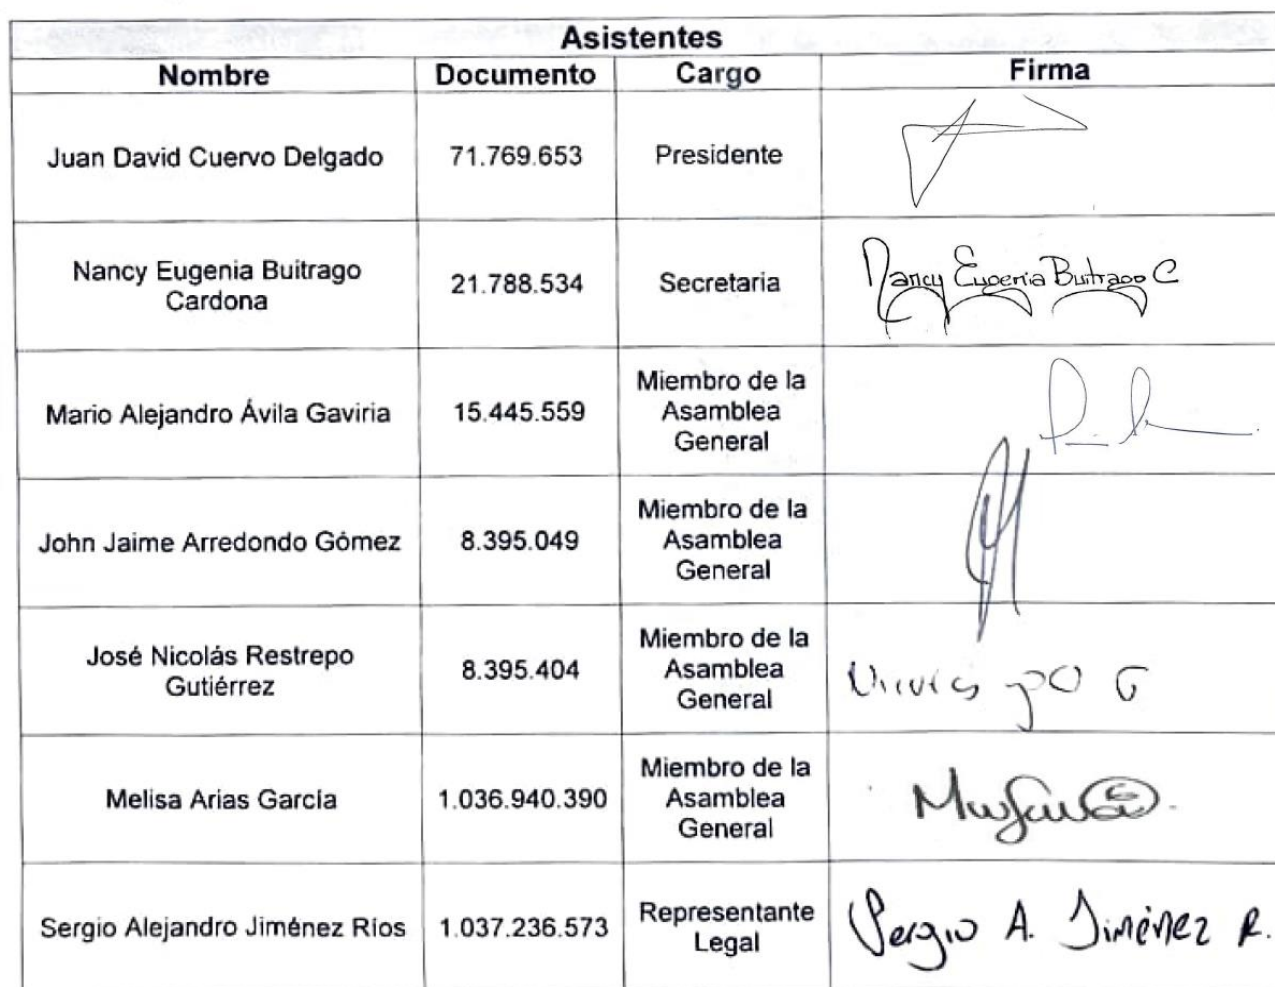 Asistentes
Nombre Documento Cargo Firma
Juan David Cuervo Delgado 71.769.653 Presidente
Nancy Eugenia Buitrago
Cardona
21.788.534 Secretaria Nancy Eugenia Buitrago C
Mario Alejandro Ávila Gaviria 15.445.559 Miembro de la
Asamblea
General
John Jaime Arredondo Gómez 8.395.049 Miembro de la
Asamblea
General
José Nicolás Restrepo
Gutiérrez
8.395.404 Miembro de la
Asamblea
General
Melisa Arias García 1.036.940.390 Miembro de la
Asamblea
General
Sergio Alejandro Jiménez Ríos 1.037.236.573 Representante
Legal
Sergio A. Jiménez R.